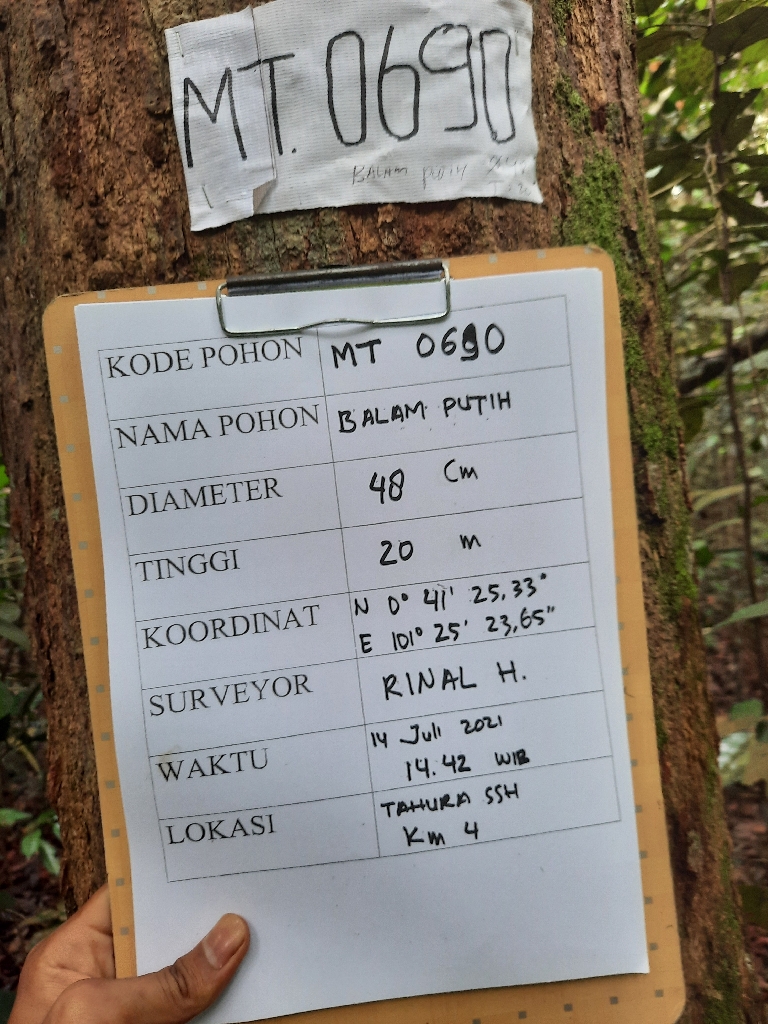 MT. 0690
BALAM
KODE POHON MT 0690
NAMA POHON BALAM PUTIH
DIAMETER 48 Cm
TINGGI 20 m
KOORDINAT N 0° 41' 25,33"
E 101° 25' 23,65"
SURVEYOR RINAL H.
WAKTU 14 Juli 2021
14.42 WIB
LOKASI TAHURA SSH
Km 4